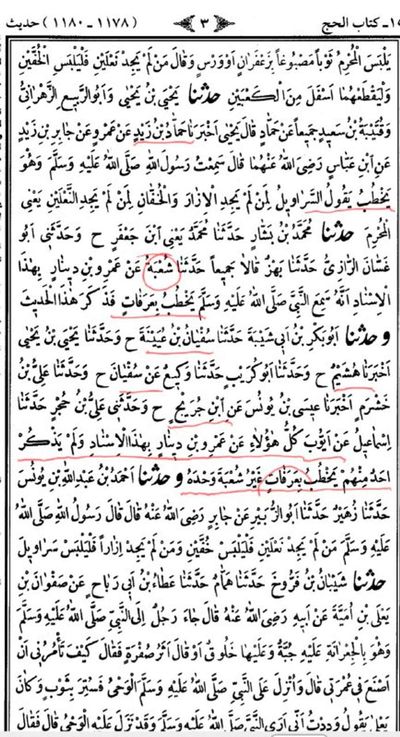 ١٥ـ كتاب الحج ﴿ ٣ ﴾ (١١٧٨ ـ ١١٨٠) حديث
يَلْبَسَ الْمُحْرِمُ ثَوْباً مَصْبُوغاً بِزَعْفَرَانٍ أَوْ وَرْسٍ وَقَالَ مَنْ لَمْ يَجِدْ نَعْلَيْنِ فَلْيَلْبَسِ الْخُفَّيْنِ
وَلْيَقْطَعْهُمَا أَسْفَلَ مِنَ الْكَعْبَيْنِ حَدَّثَنَا يَحْيَى بْنُ يَحْيَى وَأَبُو الرَّبِيعِ الزَّهْرَانِيُّ
وَقُتَيْبَةُ بْنُ سَعِيدٍ جَمِيعاً عَنْ حَمَّادٍ قَالَ يَحْيَى أَخْبَرَنَا حَمَّادُ بْنُ زَيْدٍ عَنْ عَمْرٍو عَنْ جَابِرِ بْنِ زَيْدٍ
عَنِ ابْنِ عَبَّاسٍ رَضِيَ اللهُ عَنْهُمَا قَالَ سَمِعْتُ رَسُولَ اللهِ صَلَّى اللهُ عَلَيْهِ وَسَلَّمَ وَهُوَ
يَخْطُبُ يَقُولُ السَّرَاوِيلُ لِمَنْ لَمْ يَجِدِ الْإِزَارَ وَالْخُفَّانِ لِمَنْ لَمْ يَجِدِ النَّعْلَيْنِ يَعْنِي
الْمُحْرِمَ حَدَّثَنَا مُحَمَّدُ بْنُ بَشَّارٍ حَدَّثَنَا مُحَمَّدٌ يَعْنِي ابْنَ جَعْفَرٍ ح وَحَدَّثَنِي أَبُو
غَسَّانَ الرَّازِيُّ حَدَّثَنَا بَهْزٌ قَالَا جَمِيعاً حَدَّثَنَا شُعْبَةُ عَنْ عَمْرِو بْنِ دِينَارٍ بِهٰذَا
الْإِسْنَادِ أَنَّهُ سَمِعَ النَّبِيَّ صَلَّى اللهُ عَلَيْهِ وَسَلَّمَ يَخْطُبُ بِعَرَفَاتٍ فَذَكَرَ هٰذَا الْحَدِيثَ
وحَدَّثَنَا أَبُو بَكْرِ بْنُ أَبِي شَيْبَةَ حَدَّثَنَا سُفْيَانُ بْنُ عُيَيْنَةَ ح وَحَدَّثَنَا يَحْيَى بْنُ يَحْيَى
أَخْبَرَنَا هُشَيْمٌ ح وَحَدَّثَنَا أَبُو كُرَيْبٍ حَدَّثَنَا وَكِيعٌ عَنْ سُفْيَانَ ح وَحَدَّثَنَا عَلِيُّ بْنُ
خَشْرَمٍ أَخْبَرَنَا عِيسَى بْنُ يُونُسَ عَنِ ابْنِ جُرَيْجٍ ح وَحَدَّثَنِي عَلِيُّ بْنُ حُجْرٍ حَدَّثَنَا
إِسْمَاعِيلُ عَنْ أَيُّوبَ كُلُّ هٰؤُلَاءِ عَنْ عَمْرِو بْنِ دِينَارٍ بِهٰذَا الْإِسْنَادِ وَلَمْ يَذْكُرْ
أَحَدٌ مِنْهُمْ يَخْطُبُ بِعَرَفَاتٍ غَيْرُ شُعْبَةَ وَحْدَهُ وحَدَّثَنَا أَحْمَدُ بْنُ عَبْدِ اللهِ بْنِ يُونُسَ
حَدَّثَنَا زُهَيْرٌ حَدَّثَنَا أَبُو الزُّبَيْرِ عَنْ جَابِرٍ رَضِيَ اللهُ عَنْهُ قَالَ قَالَ رَسُولُ اللهِ صَلَّى اللهُ
عَلَيْهِ وَسَلَّمَ مَنْ لَمْ يَجِدْ نَعْلَيْنِ فَلْيَلْبَسْ خُفَّيْنِ وَمَنْ لَمْ يَجِدْ إِزَاراً فَلْيَلْبَسْ سَرَاوِيلَ
حَدَّثَنَا شَيْبَانُ بْنُ فَرُّوخَ حَدَّثَنَا هَمَّامٌ حَدَّثَنَا عَطَاءُ بْنُ أَبِي رَبَاحٍ عَنْ صَفْوَانَ بْنِ
يَعْلَى بْنِ أُمَيَّةَ عَنْ أَبِيهِ رَضِيَ اللهُ عَنْهُ قَالَ جَاءَ رَجُلٌ إِلَى النَّبِيِّ صَلَّى اللهُ عَلَيْهِ وَسَلَّمَ
وَهُوَ بِالْجِعْرَانَةِ عَلَيْهِ جُبَّةٌ وَعَلَيْهَا خَلُوقٌ أَوْ قَالَ أَثَرُ صُفْرَةٍ فَقَالَ كَيْفَ تَأْمُرُنِي أَنْ
أَصْنَعَ فِي عُمْرَتِي قَالَ وَأُنْزِلَ عَلَى النَّبِيِّ صَلَّى اللهُ عَلَيْهِ وَسَلَّمَ الْوَحْيُ فَسُتِرَ بِثَوْبٍ وَكَانَ
يَعْلَى يَقُولُ وَدِدْتُ أَنِّي أَرَى النَّبِيَّ صَلَّى اللهُ عَلَيْهِ وَسَلَّمَ وَقَدْ نَزَلَ عَلَيْهِ الْوَحْيُ قَالَ فَقَالَ